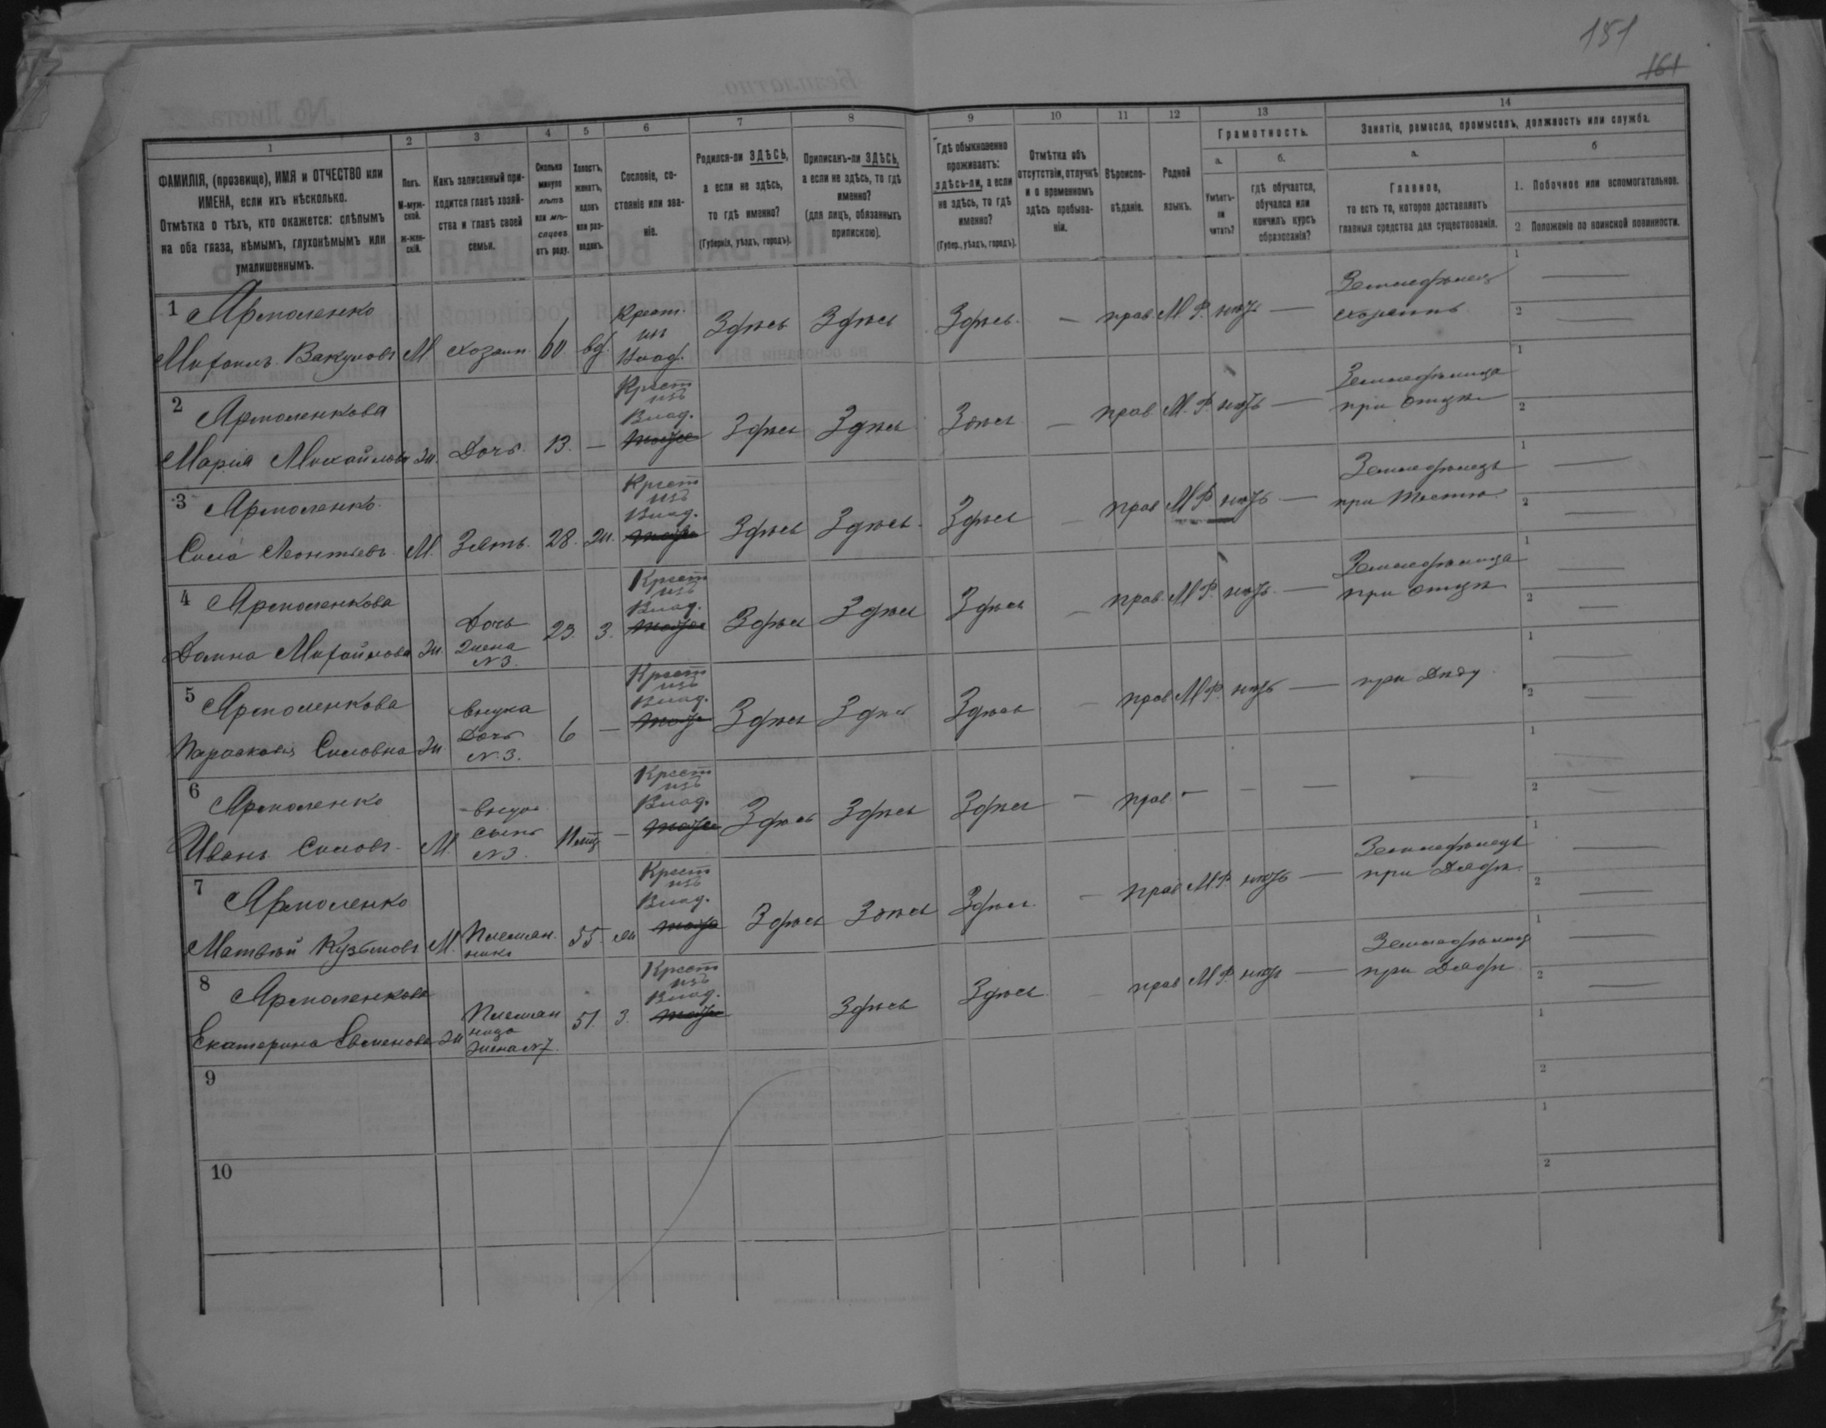 151
161
1 2 3 4 5 6 7 8 9 10 11 12 13 14
ФАМИЛІЯ, (прозвище), ИМЯ и ОТЧЕСТВО или ИМЕНА, если ихъ нѣсколько.
Отмѣтка о тѣхъ, кто окажется: слѣпымъ на оба глаза, нѣмымъ, глухонѣмымъ или умалишеннымъ.
Полъ. М-мужской. Ж-женскій.
Какъ записанный приходится главѣ хозяйства и главѣ своей семьи.
Сколько минуло лѣтъ или мѣсяцевъ отъ роду.
Холостъ, женатъ, вдовъ или разведенъ.
Сословіе, состояніе или званіе.
Родился-ли ЗДѢСЬ, а если не здѣсь, то гдѣ именно?
(Губернія, уѣздъ, городъ).
Приписанъ-ли ЗДѢСЬ, а если не здѣсь, то гдѣ именно?
(для лицъ, обязанныхъ припиской).
Гдѣ обыкновенно проживаетъ: здѣсь-ли, а если не здѣсь, то гдѣ именно?
(Губер., уѣздъ, городъ).
Отмѣтка объ отсутствіи, отлучкѣ и о временномъ здѣсь пребываніи.
Вѣроисповѣданіе.
Родной языкъ.
Грамотность.
а. Умѣетъ-ли читать?
б. гдѣ обучается, обучался или кончилъ курсъ образованія?
Занятіе, ремесло, промыселъ, должность или служба.
а. Главное, то есть то, которое доставляетъ главныя средства для существованія.
б
1. Побочное или вспомогательное.
2 Положеніе по воинской повинности.
1 Ярмоленко
Михаилъ Вакуловъ М хозяин 60 вд. Крест. из Влад. Здѣсь Здѣсь Здѣсь — прав. М. Р. нѣтъ — Земледѣлец хозяинъ
2 Ярмоленкова
Мария Михайлова Ж. Дочь. 13. — Крест изъ Влад. Здѣсь Здѣсь Здѣсь — прав М. Р. нѣтъ — Земледѣлица при отцѣ
3 Ярмоленко
Сила Леонтьевъ М. Зять. 28. Ж. Крест изъ Влад. Здѣсь Здѣсь Здѣсь — прав М Р. нѣтъ — Земледѣлецъ при Тестѣ
4 Ярмоленкова
Домна Михайлова Ж. Дочь Жена №3. 23. З. Крест изъ Влад. Здѣсь Здѣсь Здѣсь — прав. М Р. нѣтъ — Земледѣлица при отцѣ
5 Ярмоленкова
Парасковія Силовна Ж Внука Дочь №3. 6 — Крест изъ Влад. Здѣсь Здѣсь Здѣсь — прав М Р. нѣтъ — при Дѣду
6 Ярмоленко
Иванъ Силовъ М. внук сынъ №3 — Крест изъ Влад. Здѣсь Здѣсь Здѣсь — прав. — — —
7 Ярмоленко
Матвѣй Кузьмовъ М. Племянникъ 55 Крест изъ Влад. Здѣсь Здѣсь Здѣсь — прав М Р нѣтъ — Земледѣлецъ при Дядѣ
8 Ярмоленкова
Екатерина Семенова Ж Племянница Жена №7. 51. З. Крест изъ Влад. Здѣсь Здѣсь — прав М Р. нѣтъ — при Дядѣ
9
10